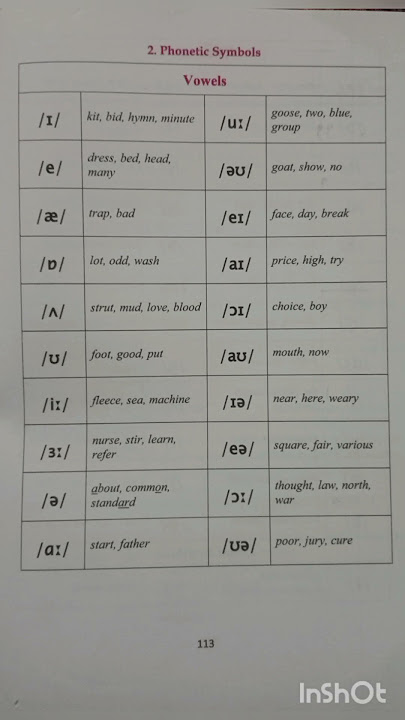 2. Phonetic Symbols
Vowels
/ɪ/ kit, bid, hymn, minute /uː/ goose, two, blue,
group
/e/ dress, bed, head,
many /əʊ/ goat, show, no
/æ/ trap, bad /eɪ/ face, day, break
/ɒ/ lot, odd, wash /aɪ/ price, high, try
/ʌ/ strut, mud, love, blood /ɔɪ/ choice, boy
/ʊ/ foot, good, put /aʊ/ mouth, now
/iː/ fleece, sea, machine /ɪə/ near, here, weary
/ɜː/ nurse, stir, learn,
refer /eə/ square, fair, various
/ə/ about, common,
standard /ɔː/ thought, law, north,
war
/ɑː/ start, father /ʊə/ poor, jury, cure
113
InShOt